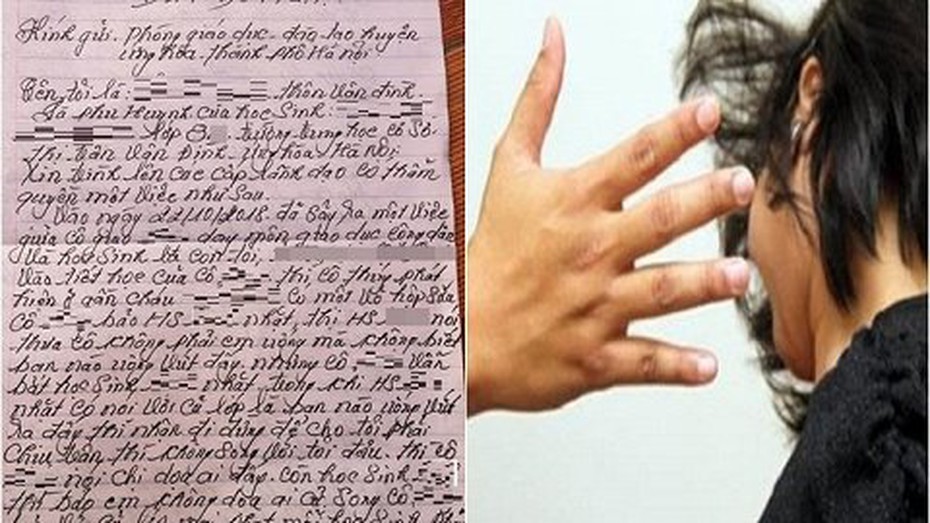 Kính gửi. Phòng giáo dục - đào tạo huyện
ứng hòa. thành phố Hà Nội
Tên tôi là: thôn Vân đình.
Là phụ huynh của học sinh:
lớp 8 trường trung học cơ sở
thị trấn Vân Đình - ứng hòa Hà Nội
Xin trình lên các cấp lãnh đạo có thẩm
quyền một việc như sau.
Vào ngày 22/10/2018 đã xảy ra một việc
giữa cô giáo dạy môn giáo dục công dân
và học sinh là con tôi,
vào tiết học của cô, thì cô thấy phát
hiện ở gần cháu có một vỏ hộp sữa
cô bảo HS nhặt, thì HS nói
thưa cô không phải em uống mà không biết
bạn nào uống vứt đấy. nhưng cô vẫn
bắt học sinh nhặt trong khi HS
nhặt có nói với cả lớp là bạn nào uống vứt
ra đây thì nhận đi đừng để cho tôi phải
chịu vẫn thì không xong với tôi đâu. thì cô
nói chị dọa ai đấy. còn học sinh
thì bảo em không dọa ai cả song cô